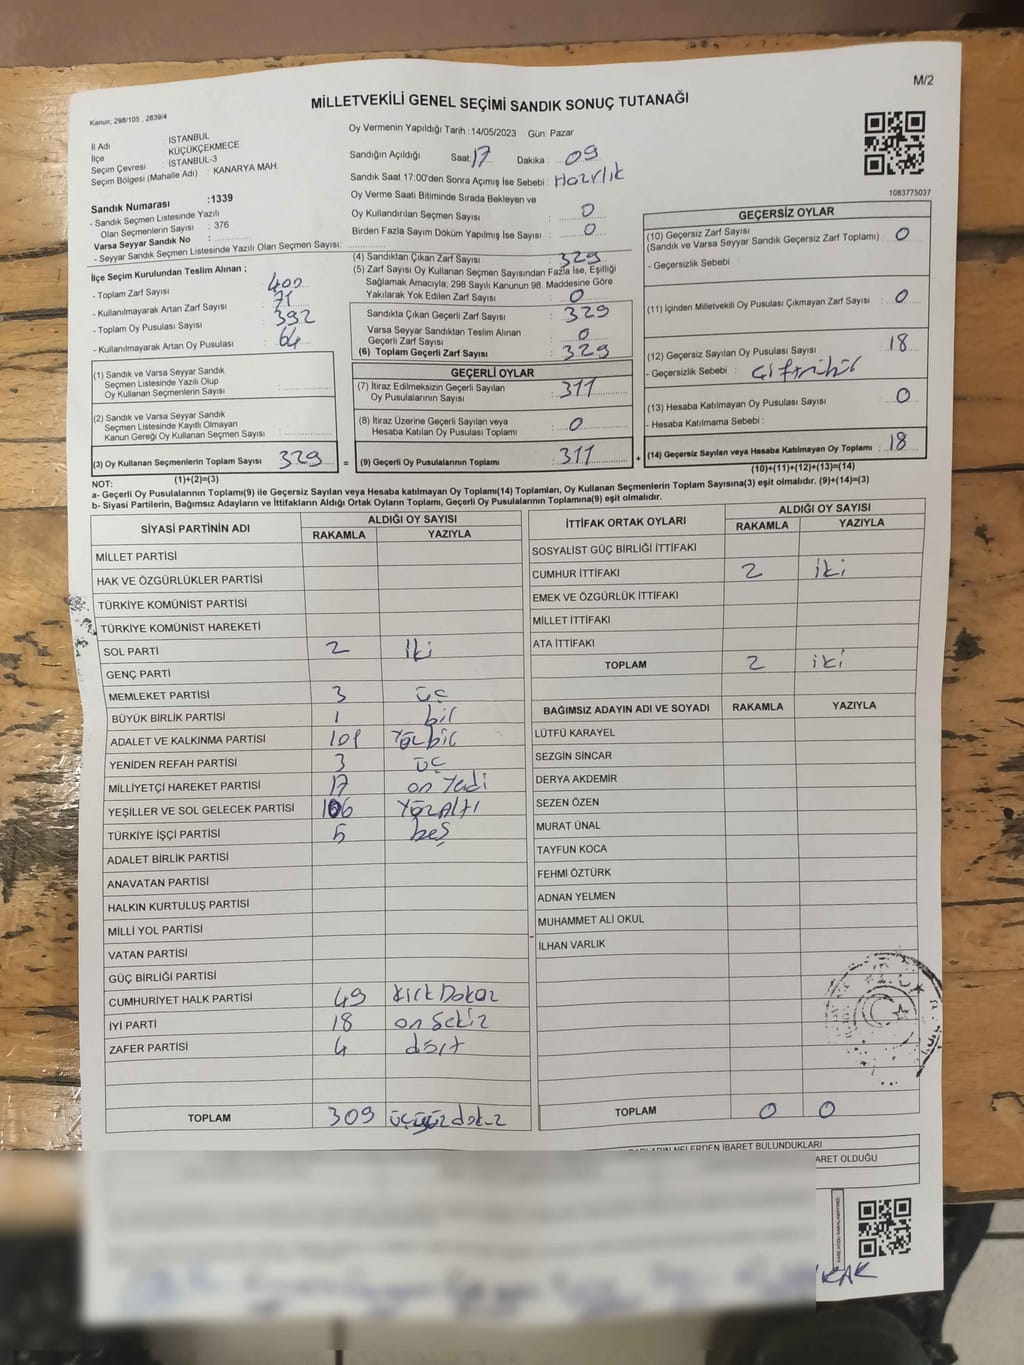 M/2
MİLLETVEKİLİ GENEL SEÇİMİ SANDIK SONUÇ TUTANAĞI
Kanun, 298/105 , 2839/4
İl Adı : İSTANBUL
İlçe : KÜÇÜKÇEKMECE
Seçim Çevresi : İSTANBUL-3
Seçim Bölgesi (Mahalle Adı) : KANARYA MAH.
Sandık Numarası :1339
- Sandık Seçmen Listesinde Yazılı
Olan Seçmenlerin Sayısı : 376
Varsa Seyyar Sandık No :
- Seyyar Sandık Seçmen Listesinde Yazılı Olan Seçmen Sayısı:
İlçe Seçim Kurulundan Teslim Alınan ;
- Toplam Zarf Sayısı : 400
- Kullanılmayarak Artan Zarf Sayısı : 71
- Toplam Oy Pusulası Sayısı : 392
- Kullanılmayarak Artan Oy Pusulası : 64
(1) Sandık ve Varsa Seyyar Sandık
Seçmen Listesinde Yazılı Olup
Oy Kullanan Seçmenlerin Sayısı :
(2) Sandık ve Varsa Seyyar Sandık
Seçmen Listesinde Kayıtlı Olmayan
Kanun Gereği Oy Kullanan Seçmen Sayısı :
(3) Oy Kullanan Seçmenlerin Toplam Sayısı 329
(1)+(2)=(3)
Oy Vermenin Yapıldığı Tarih : 14/05/2023 Gün: Pazar
Sandığın Açıldığı Saat: 17 Dakika : 09
Sandık Saat 17:00'den Sonra Açımış İse Sebebi : Hazırlık
Oy Verme Saati Bitiminde Sırada Bekleyen ve
Oy Kullandırılan Seçmen Sayısı : 0
Birden Fazla Sayım Döküm Yapılmış İse Sayısı : 0
(4) Sandıktan Çıkan Zarf Sayısı : 329
(5) Zarf Sayısı Oy Kullanan Seçmen Sayısından Fazla İse, Eşitliği
Sağlamak Amacıyla; 298 Sayılı Kanunun 98. Maddesine Göre
Yakılarak Yok Edilen Zarf Sayısı : 0
Sandıkta Çıkan Geçerli Zarf Sayısı : 329
Varsa Seyyar Sandıktan Teslim Alınan
Geçerli Zarf Sayısı : 0
(6) Toplam Geçerli Zarf Sayısı : 329
GEÇERLİ OYLAR
(7) İtiraz Edilmeksizin Geçerli Sayılan
Oy Pusulalarının Sayısı : 311
(8) İtiraz Üzerine Geçerli Sayılan veya
Hesaba Katılan Oy Pusulası Toplamı : 0
= (9) Geçerli Oy Pusulalarının Toplamı : 311 +
1083775037
GEÇERSİZ OYLAR
(10) Geçersiz Zarf Sayısı
(Sandık ve Varsa Seyyar Sandık Geçersiz Zarf Toplamı) : 0
- Geçersizlik Sebebi :
(11) İçinden Milletvekili Oy Pusulası Çıkmayan Zarf Sayısı : 0
(12) Geçersiz Sayılan Oy Pusulası Sayısı : 18
- Geçersizlik Sebebi :
(13) Hesaba Katılmayan Oy Pusulası Sayısı : 0
- Hesaba Katılmama Sebebi :
(14) Geçersiz Sayılan veya Hesaba Katılmayan Oy Toplamı : 18
(10)+(11)+(12)+(13)=(14)
NOT:
a- Geçerli Oy Pusulalarının Toplamı(9) ile Geçersiz Sayılan veya Hesaba katılmayan Oy Toplamı(14) Toplamları, Oy Kullanan Seçmenlerin Toplam Sayısına(3) eşit olmalıdır. (9)+(14)=(3)
b- Siyasi Partilerin, Bağımsız Adayların ve İttifakların Aldığı Ortak Oyların Toplamı, Geçerli Oy Pusulalarının Toplamına(9) eşit olmalıdır.
SİYASİ PARTİNİN ADI ALDIĞI OY SAYISI
RAKAMLA YAZIYLA
MİLLET PARTİSİ
HAK VE ÖZGÜRLÜKLER PARTİSİ
TÜRKİYE KOMÜNİST PARTİSİ
TÜRKİYE KOMÜNİST HAREKETİ
SOL PARTİ 2 İki
GENÇ PARTİ
MEMLEKET PARTİSİ 3 üç
BÜYÜK BİRLİK PARTİSİ 1 bir
ADALET VE KALKINMA PARTİSİ 101 Yüz bir
YENİDEN REFAH PARTİSİ 3 üç
MİLLİYETÇİ HAREKET PARTİSİ 17 on Yedi
YEŞİLLER VE SOL GELECEK PARTİSİ 106 Yüzaltı
TÜRKİYE İŞÇİ PARTİSİ 5 beş
ADALET BİRLİK PARTİSİ
ANAVATAN PARTİSİ
HALKIN KURTULUŞ PARTİSİ
MİLLİ YOL PARTİSİ
VATAN PARTİSİ
GÜÇ BİRLİĞİ PARTİSİ
CUMHURİYET HALK PARTİSİ 49 Kırk Dokuz
İYİ PARTİ 18 on Sekiz
ZAFER PARTİSİ 4 dört
TOPLAM 309 üçyüz dokuz
İTTİFAK ORTAK OYLARI ALDIĞI OY SAYISI
RAKAMLA YAZIYLA
SOSYALİST GÜÇ BİRLİĞİ İTTİFAKI
CUMHUR İTTİFAKI 2 iki
EMEK VE ÖZGÜRLÜK İTTİFAKI
MİLLET İTTİFAKI
ATA İTTİFAKI
TOPLAM 2 iki
BAĞIMSIZ ADAYIN ADI VE SOYADI RAKAMLA YAZIYLA
LÜTFÜ KARAYEL
SEZGİN SİNCAR
DERYA AKDEMİR
SEZEN ÖZEN
MURAT ÜNAL
TAYFUN KOCA
FEHMİ ÖZTÜRK
ADNAN YELMEN
MUHAMMET ALİ OKUL
İLHAN VARLIK
TOPLAM 0 0
NELERDEN İBARET BULUNDUKLARI
ARET OLDUĞU